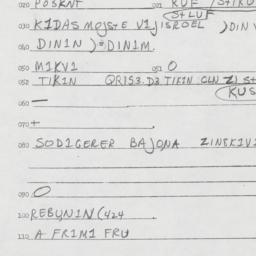 020 POSKNT 021 KUF / STIKU
(STLUF
030 KIDAS MOJSTE VIJ ISROEL ) DIN V
040 DININ ) * DINIM.
050 MIKVI 051 O
052 TIKIN QRIS3.D3 TIKIN CLN ZI ST
(KUS
060 —
070 +
080 SODIGERER BAJONA ZINSKIVI
090 O
100 REBUNIN (424
110 A FRIMI FRU